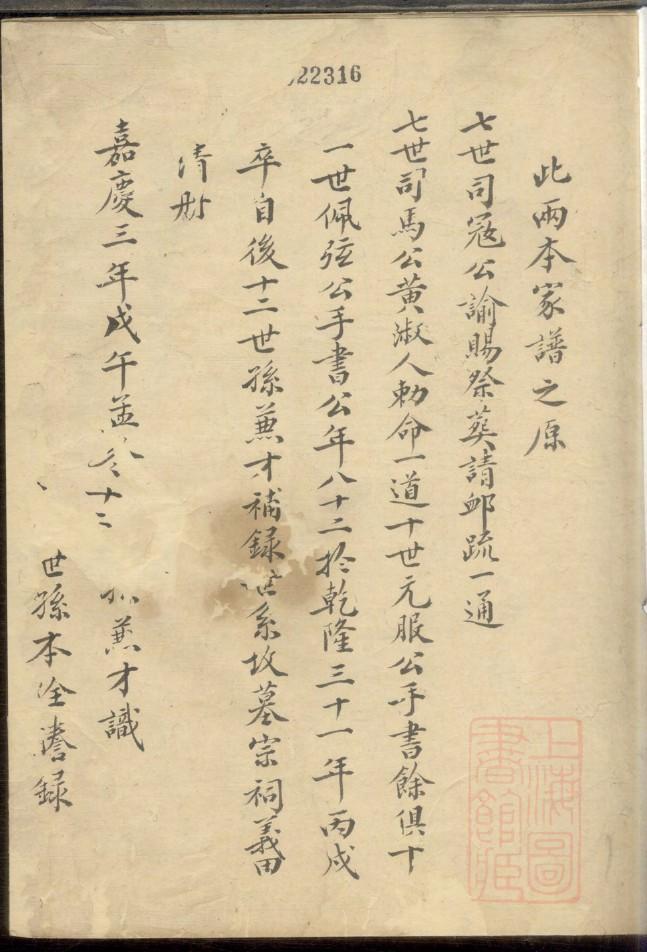 22316
此兩本家譜之原
七世司寇公諭賜祭葬請卹疏一通
七世司馬公黃淑人勅命一道十世元服公手書餘俱十
一世佩弦公手書公年八十二於乾隆三十一年丙戌
卒自後十二世孫蕙才補錄世系坟墓宗祠義田
清册
嘉慶三年戊午孟冬十二 蕙才識
世孫本詮謄録
上海圖書館藏